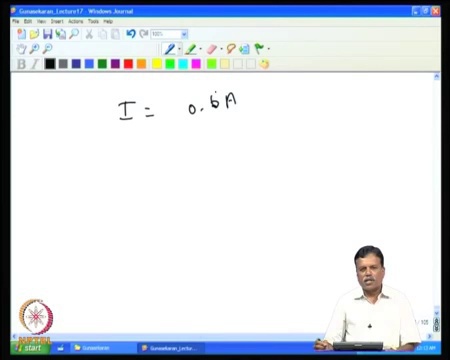 Gunasekaran_Lecture17 - Windows Journal
File Edit View Insert Actions Tools Help
100%
B I
I = 0.6A
NPTEL
start Gunasekaran Gunasekaran_Lectu...